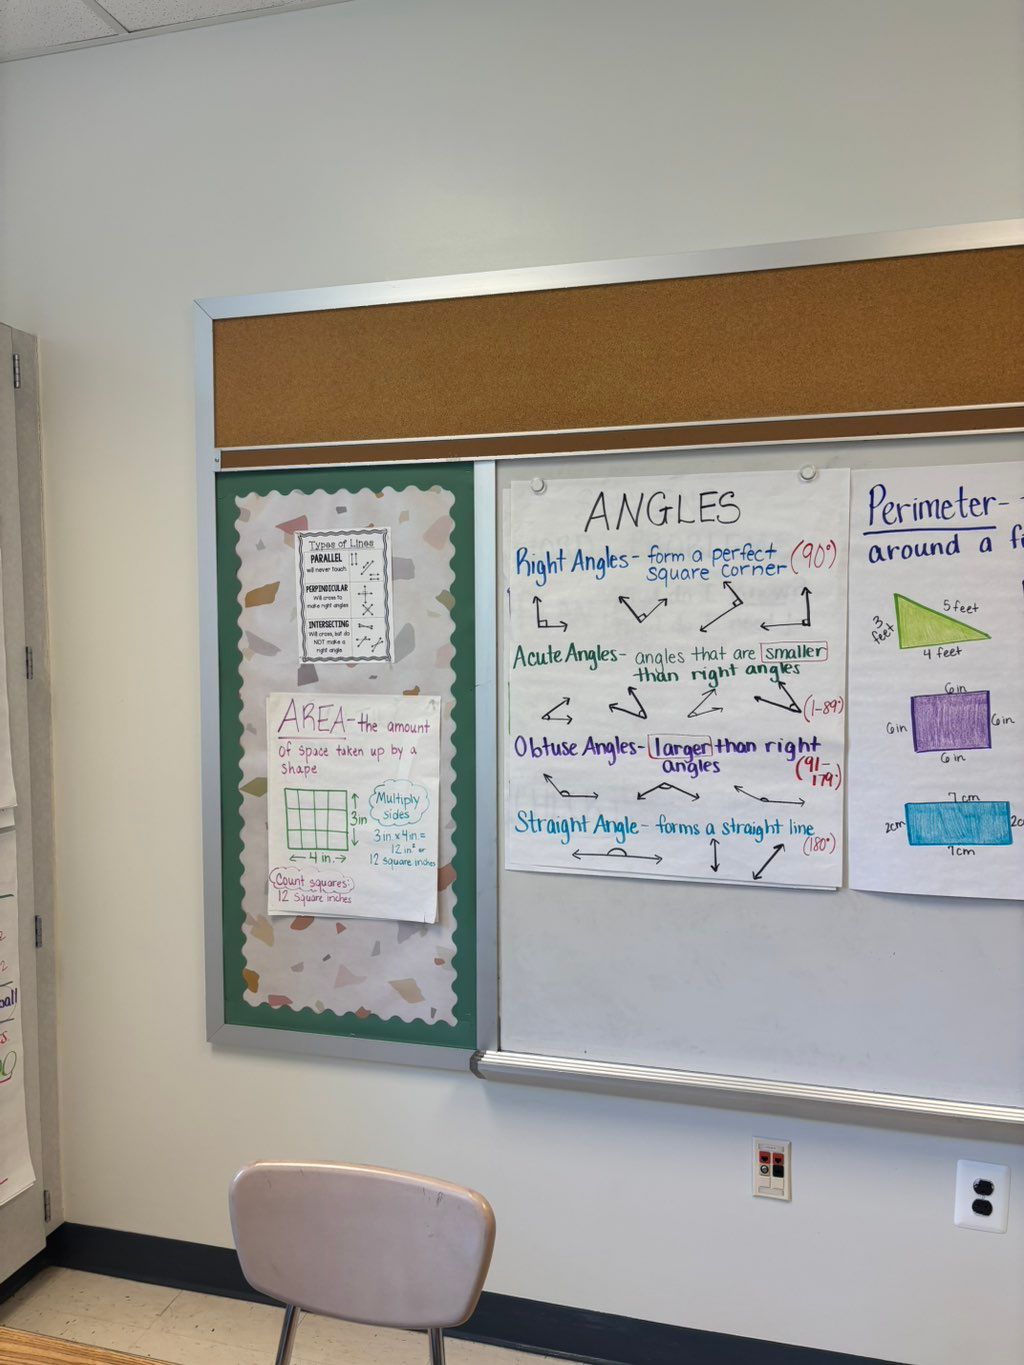 Types of Lines
PARALLEL
will never touch
PERPINDICULAR
Will cross to
make right angles
INTERSECTING
Will cross, but do
NOT make a
right angle
AREA- the amount
of space taken up by a
shape
3in
4 in.
Multiply
sides
3in.x4in.=
12 in² or
12 square inches
Count squares:
12 square inches
ANGLES
Right Angles- form a perfect
square corner (90°)
Acute Angles- angles that are smaller
than right angles
(1-89°)
Obtuse Angles- larger than right
angles
(91-
179°)
Straight Angle- forms a straight line
(180°)
Perimeter-
around a
3
feet
5 feet
4 feet
6in
6in
6in
6in
7cm
2cm
7cm
ball